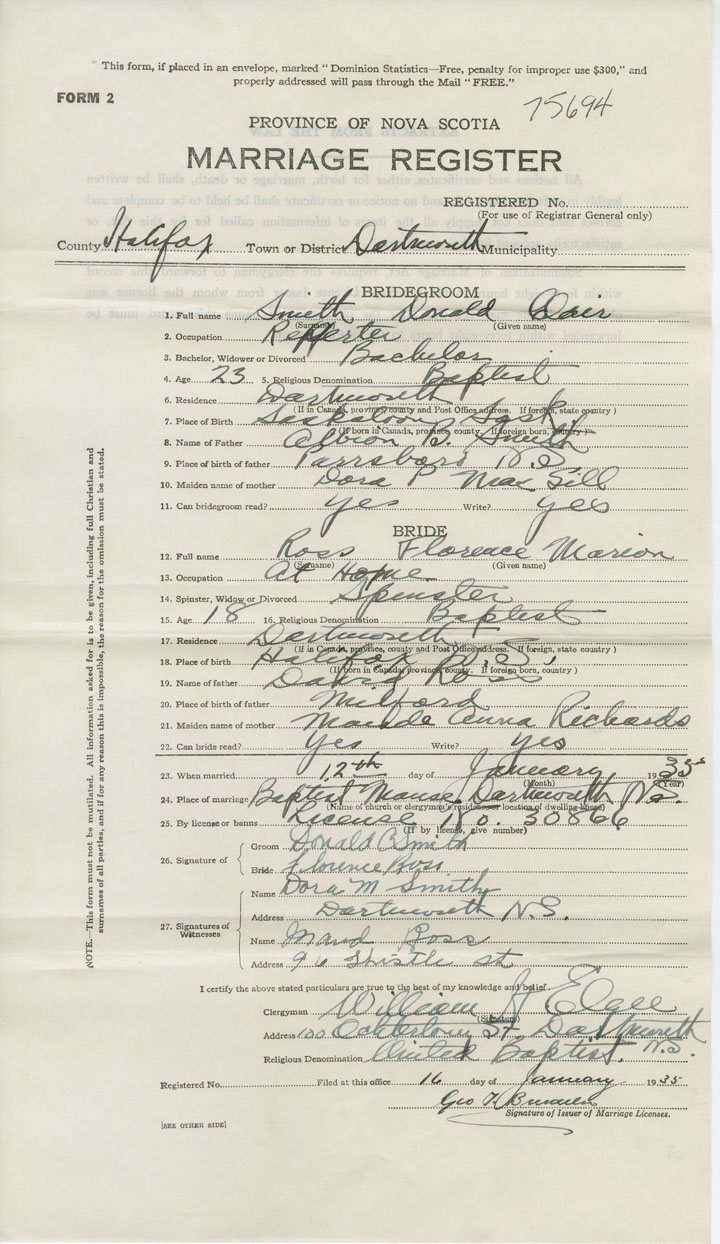 This form, if placed in an envelope, marked "Dominion Statistics—Free, penalty for improper use $300," and
properly addressed will pass through the Mail "FREE."
FORM 2
75694
PROVINCE OF NOVA SCOTIA
MARRIAGE REGISTER
REGISTERED No.
(For use of Registrar General only)
County Halifax Town or District Dartmouth Municipality
BRIDEGROOM
1. Full name Smith Donald
(Surname) (Given name)
2. Occupation Reporter
3. Bachelor, Widower or Divorced Bachelor
4. Age 23 5. Religious Denomination Baptist
6. Residence Dartmouth
(If in Canada, province, county and Post Office address. If foreign, state country)
7. Place of Birth Saskatoon Sask
(If born in Canada, province, county. If foreign born, country)
8. Name of Father Albion B. Smith
9. Place of birth of father Parrsboro N.S.
10. Maiden name of mother Dora P Mac Gill
11. Can bridegroom read? yes Write? yes
BRIDE
12. Full name Ross Florence Marion
(Surname) (Given name)
13. Occupation At Home
14. Spinster, Widow or Divorced Spinster
15. Age 18 16. Religious Denomination Baptist
17. Residence Dartmouth
(If in Canada, province, county and Post Office address. If foreign, state country)
18. Place of birth Halifax N.S.,
(If born in Canada, province, county. If foreign born, country)
19. Name of father David Ross
20. Place of birth of father Milford
21. Maiden name of mother Maude Anna Richards
22. Can bride read? Yes Write? yes
23. When married 12th day of January 1935
(Month) (Year)
24. Place of marriage Baptist Manse, Dartmouth N.S.
(Name of church or clergyman's residence or location of dwelling house)
25. By license or banns License No. 30866
(If by license, give number)
26. Signature of
Groom Donald C Smith
Bride Florence Ross
27. Signatures of Witnesses
Name Dora M Smith
Address Dartmouth N.S.
Name Maud Ross
Address Thistle st
I certify the above stated particulars are true to the best of my knowledge and belief.
Clergyman William
(Signature)
Address 100 Ochterloney St Dartmouth N.S.
Religious Denomination United Baptist.
Registered No. Filed at this office 16 day of January 1935
Geo
Signature of Issuer of Marriage Licenses.
[SEE OTHER SIDE]
NOTE.—This form must not be mutilated. All information asked for is to be given, including full Christian and
surnames of all parties, and if for any reason this is impossible, the reason for the omission must be stated.